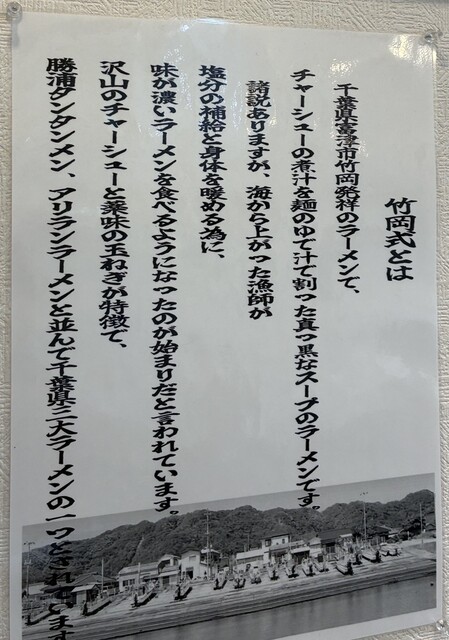 竹岡式とは
千葉県富津市竹岡発祥のラーメンで、
チャーシューの煮汁を麺のゆで汁で割った真っ黒なスープのラーメンです。
諸説ありますが、海から上がった漁師が
塩分の補給と身体を暖める為に、
味が濃いラーメンを食べるようになったのが始まりだと言われています。
沢山のチャーシューと薬味の玉ねぎが特徴で、
勝浦タンタンメン、アリランラーメンと並んで千葉県三大ラーメンの一つとされています